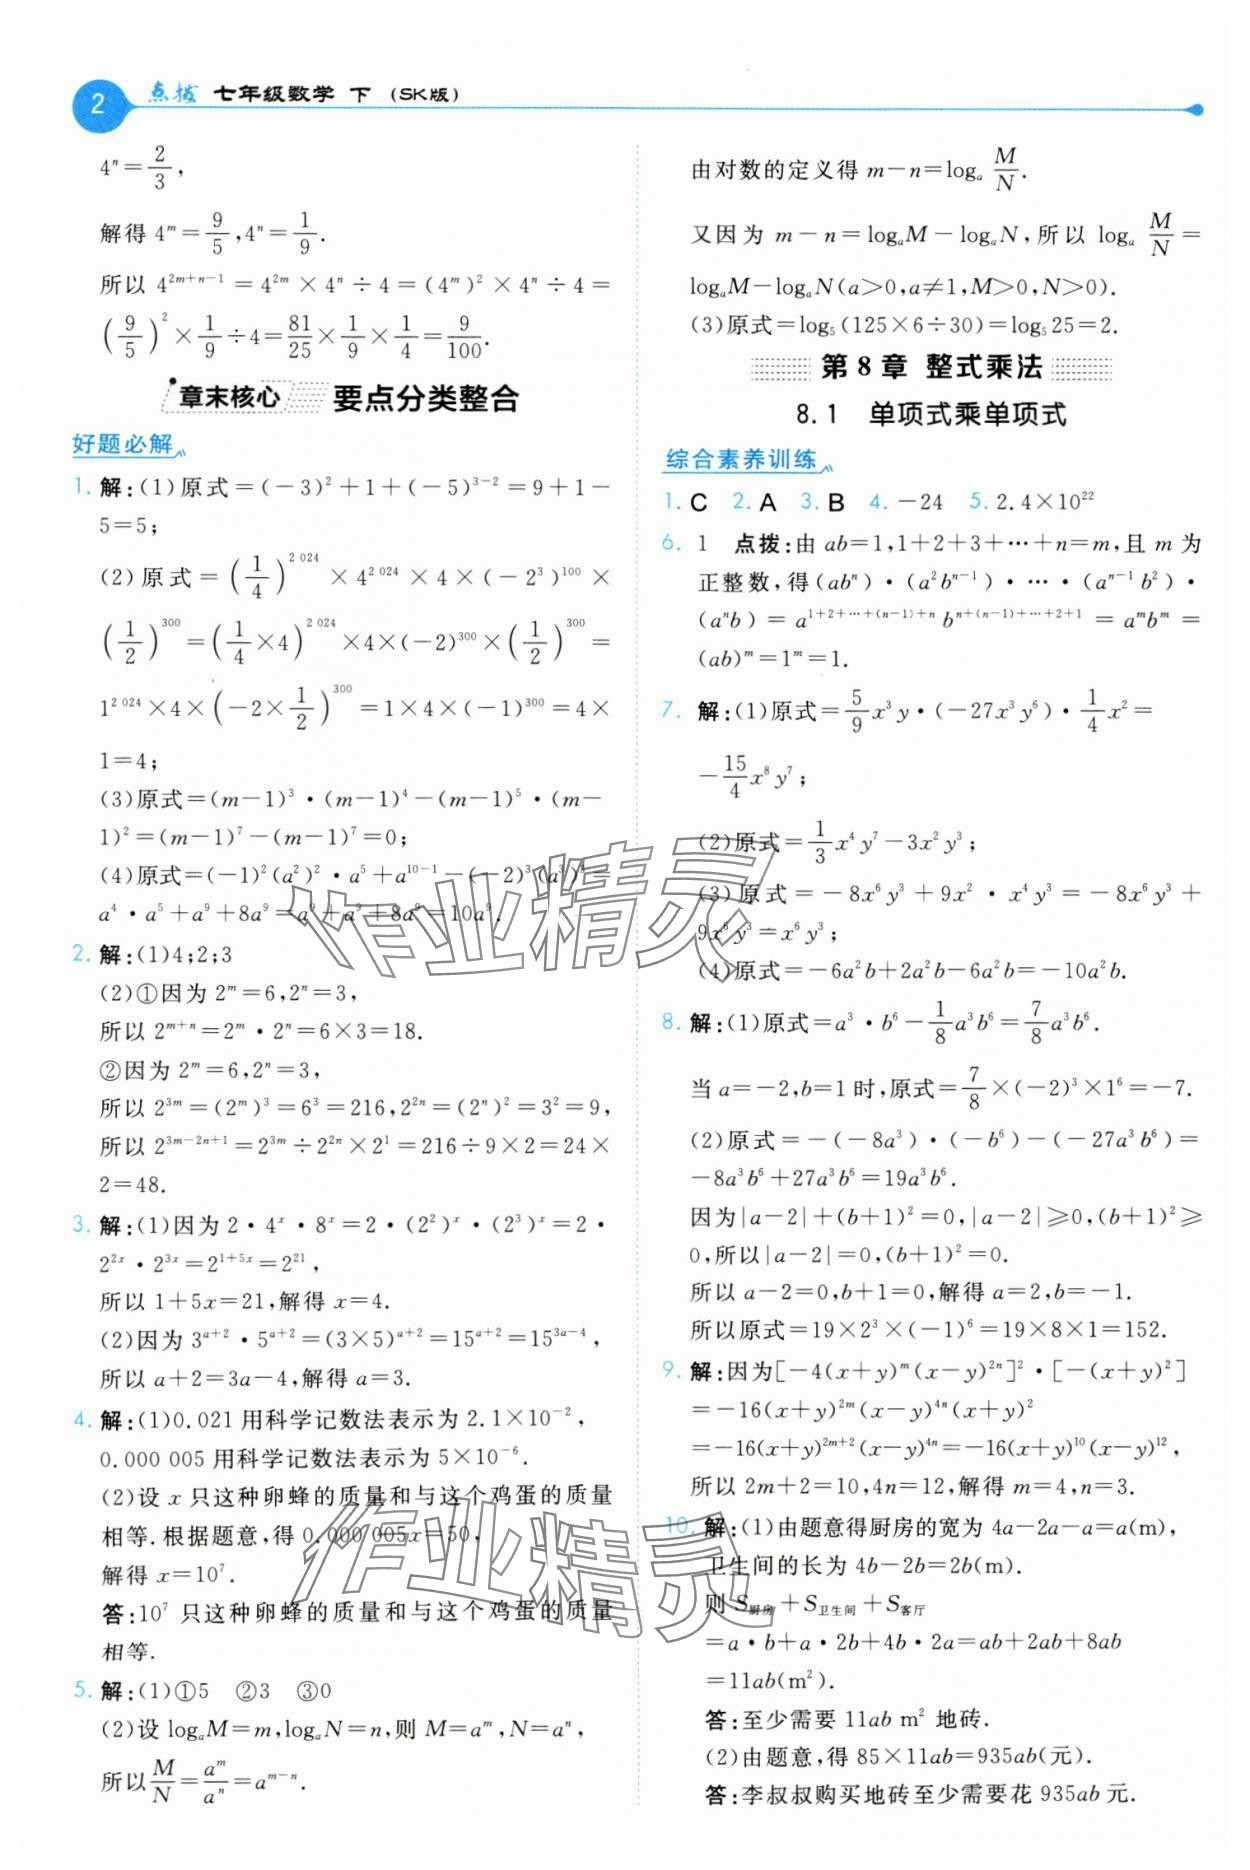 2 点拨 七年级数学 下 (SK版)
4ⁿ=2/3,
解得 4ᵐ=9/5,4ⁿ=1/9.
所以 4²ᵐ⁺ⁿ⁻¹=4²ᵐ×4ⁿ÷4=(4ᵐ)²×4ⁿ÷4=
(9/5)²×1/9÷4=81/25×1/9×1/4=9/100.
章末核心 要点分类整合
好题必解
1. 解:(1)原式=(-3)²+1+(-5)³⁻²=9+1-
5=5;
(2)原式=(1/4)^{2 024}×4^{2 024}×4×(-2³)¹⁰⁰×
(1/2)³⁰⁰=(1/4×4)^{2 024}×4×(-2)³⁰⁰×(1/2)³⁰⁰=
1^{2 024}×4×(-2×1/2)³⁰⁰=1×4×(-1)³⁰⁰=4×
1=4;
(3)原式=(m-1)³·(m-1)⁴-(m-1)⁵·(m-
1)²=(m-1)⁷-(m-1)⁷=0;
(4)原式=(-1)²(a²)²·a⁵+a¹⁰⁻¹-(-2)³(a³)³=
a⁴·a⁵+a⁹+8a⁹=a⁹+a⁹+8a⁹=10a⁹.
2. 解:(1)4;2;3
(2)①因为 2ᵐ=6,2ⁿ=3,
所以 2ᵐ⁺ⁿ=2ᵐ·2ⁿ=6×3=18.
②因为 2ᵐ=6,2ⁿ=3,
所以 2³ᵐ=(2ᵐ)³=6³=216,2²ⁿ=(2ⁿ)²=3²=9,
所以 2³ᵐ⁻²ⁿ⁺¹=2³ᵐ÷2²ⁿ×2¹=216÷9×2=24×
2=48.
3. 解:(1)因为 2·4ˣ·8ˣ=2·(2²)ˣ·(2³)ˣ=2·
2²ˣ·2³ˣ=2¹⁺⁵ˣ=2²¹,
所以 1+5x=21,解得 x=4.
(2)因为 3ᵃ⁺²·5ᵃ⁺²=(3×5)ᵃ⁺²=15ᵃ⁺²=15³ᵃ⁻⁴,
所以 a+2=3a-4,解得 a=3.
4. 解:(1)0.021 用科学记数法表示为 2.1×10⁻²,
0.000 005 用科学记数法表示为 5×10⁻⁶.
(2)设 x 只这种卵蜂的质量和与这个鸡蛋的质量
相等.根据题意,得 0.000 005x=50,
解得 x=10⁷.
答:10⁷ 只这种卵蜂的质量和与这个鸡蛋的质量
相等.
5. 解:(1)①5 ②3 ③0
(2)设 logₐM=m,logₐN=n,则 M=aᵐ,N=aⁿ,
所以 M/N=aᵐ/aⁿ=aᵐ⁻ⁿ.
由对数的定义得 m-n=logₐ M/N.
又因为 m-n=logₐM-logₐN,所以 logₐ M/N=
logₐM-logₐN(a>0,a≠1,M>0,N>0).
(3)原式=log₅(125×6÷30)=log₅25=2.
第 8 章 整式乘法
8.1 单项式乘单项式
综合素养训练
1. C 2. A 3. B 4. -24 5. 2.4×10²²
6. 1 点拨:由 ab=1,1+2+3+⋯+n=m,且 m 为
正整数,得(abⁿ)·(a²bⁿ⁻¹)·⋯·(aⁿ⁻¹b²)·
(aⁿb)=a^{1+2+⋯+(n-1)+n}b^{n+(n-1)+⋯+2+1}=aᵐbᵐ=
(ab)ᵐ=1ᵐ=1.
7. 解:(1)原式=5/9x³y·(-27x³y⁶)·1/4x²=
-15/4x⁸y⁷;
(2)原式=1/3x⁴y⁷-3x²y³;
(3)原式=-8x⁶y³+9x²·x⁴y³=-8x⁶y³+
9x⁶y³=x⁶y³;
(4)原式=-6a²b+2a²b-6a²b=-10a²b.
8. 解:(1)原式=a³·b⁶-1/8a³b⁶=7/8a³b⁶.
当 a=-2,b=1 时,原式=7/8×(-2)³×1⁶=-7.
(2)原式=-(-8a³)·(-b⁶)-(-27a³b⁶)=
-8a³b⁶+27a³b⁶=19a³b⁶.
因为|a-2|+(b+1)²=0,|a-2|≥0,(b+1)²≥
0,所以|a-2|=0,(b+1)²=0.
所以 a-2=0,b+1=0,解得 a=2,b=-1.
所以原式=19×2³×(-1)⁶=19×8×1=152.
9. 解:因为[-4(x+y)ᵐ(x-y)²ⁿ]²·[-(x+y)²]
=-16(x+y)²ᵐ(x-y)⁴ⁿ(x+y)²
=-16(x+y)²ᵐ⁺²(x-y)⁴ⁿ=-16(x+y)¹⁰(x-y)¹²,
所以 2m+2=10,4n=12,解得 m=4,n=3.
10. 解:(1)由题意得厨房的宽为 4a-2a-a=a(m),
卫生间的长为 4b-2b=2b(m).
则 S厨房+S卫生间+S客厅
=a·b+a·2b+4b·2a=ab+2ab+8ab
=11ab(m²).
答:至少需要 11ab m² 地砖.
(2)由题意,得 85×11ab=935ab(元).
答:李叔叔购买地砖至少需要花 935ab 元.
作业精灵
作业精灵